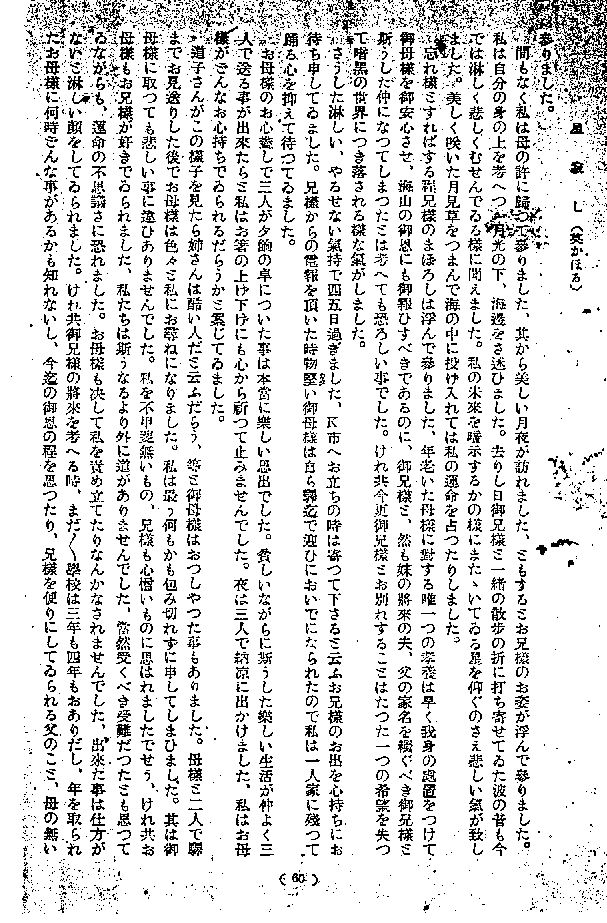 参りました。
風寂し(英かほる)
間もなく私は母の許に歸つて參りました、其から美しい月夜が訪れました、ともするとお兄様のお姿が浮んで參りました。
私は自分の身の上を考へつゝ月光の下、海邊をさ迷ひました。去りし日御兄様と一緒の散歩の折に打ち寄せてゐた波の音も今
では淋しく悲しくむせんでゐる様に聞えました。私の未來を暗示するかの様にまたゝいてゐる星を仰ぐのさえ悲しい氣が致し
ました。美しく咲いた月見草をつまんで海の中に投げ入れては私の運命を占つたりしました。
忘れ様とすればする程兄様のまぼろしは浮んで參りました、年老いた母様に對する唯一つの孝養は早く我身の處置をつけて
御母様を御安心させ、海山の御恩にも御報ひすべきであるのに、御兄様と、然も妹の將來の夫、父の家名を繼ぐべき御兄様と
斯うした仲になつてしまつたとは考へても恐ろしい事でした。けれ共今近御兄様とお別れすることはたつた一つの希望を失つ
て暗黒の世界につき落される様な氣がしました。
さうした淋しい、やるせない氣持で四五日過ぎました、K市へお立ちの時は寄つて下さると云ふお兄様のお出を心持ちにお
待ち申してゐました。兄様からの電報を頂いた時物堅い御母様は自ら驛迄で迎ひにおいでになられたので私は一人家に殘つて
踊る心を抑えて待つてゐました。
お母様のお心盡しで三人が夕餉の卓についた事は本當に樂しい思出でした。貧しいながらに斯うした樂しい生活が仲よく三
人で送る事が出來たらと私はお箸の上げ下げにも心から祈つて止みませんでした。夜は三人で納凉に出かけました、私はお母
様がどんなお心持ちでゐられるだらうかと案じてゐました。
道子さんがこの樣子を見たら姉さんは酷い人だと云ふだらう、等と御母様はおつしやつた事もありました。母様と二人で驛
までお見送りした後でお母様は色々と私にお尋ねになりました。私は最う何もかも包み切れずに申してしまひました。其は御
母様に取つても悲しい事に違ひありませんでした。私を不甲斐無いもの、兄様も心憎いものに思はれましたでせう、けれ共お
母様もお兄様が好きでゐられました、私たちは斯うなるより外に道がありませんでした、當然受くべき受難だつたとも思つて
ゐながらも、運命の不思議さに恐れました。お母様も決して私を責め立てたりなんかなされませんでした、出來た事は仕方が
ないと淋しい顔をしてゐられました。けれ共御兄様の將來を考へる時、まだ〱學校は三年も四年もおありだし、年を取られ
たお母様に何時どんな事があるかも知れないし、今迄の御恩の程を思つたり、兄様を便りにしてゐられる父のこと、母の無い
(60)